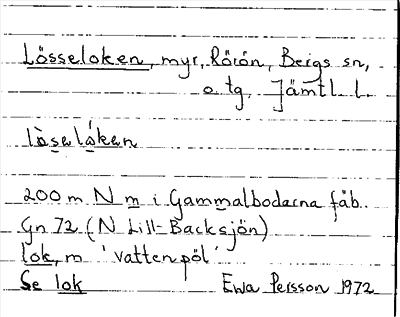 Lösseloken, myr, Rörön, Bergs sn,
o. tg, Jämtl. l.
lò̱selá̱ken
200 m N m i Gammalbodarna fäb.
Gn 72 (N Lill-Backsjön)
lok, m 'vattenpöl'
Se lok Ewa Persson 1972